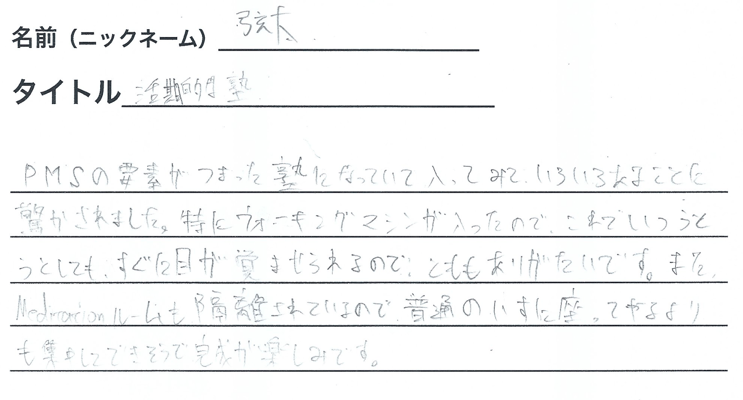 名前（ニックネーム） 弦太
タイトル 活期的な塾
PMSの要素がつまった塾になっていて入ってみて、いろいろなことに
驚かされました。特にウォーキングマシンが入ったので、これでいつうと
うとしても、すぐに目が覚ませられるので、とてもありがたいです。また、
Meditationルームも隔離されているので、普通のいすに座ってやるより
も集中してできそうで完成が楽しみです。